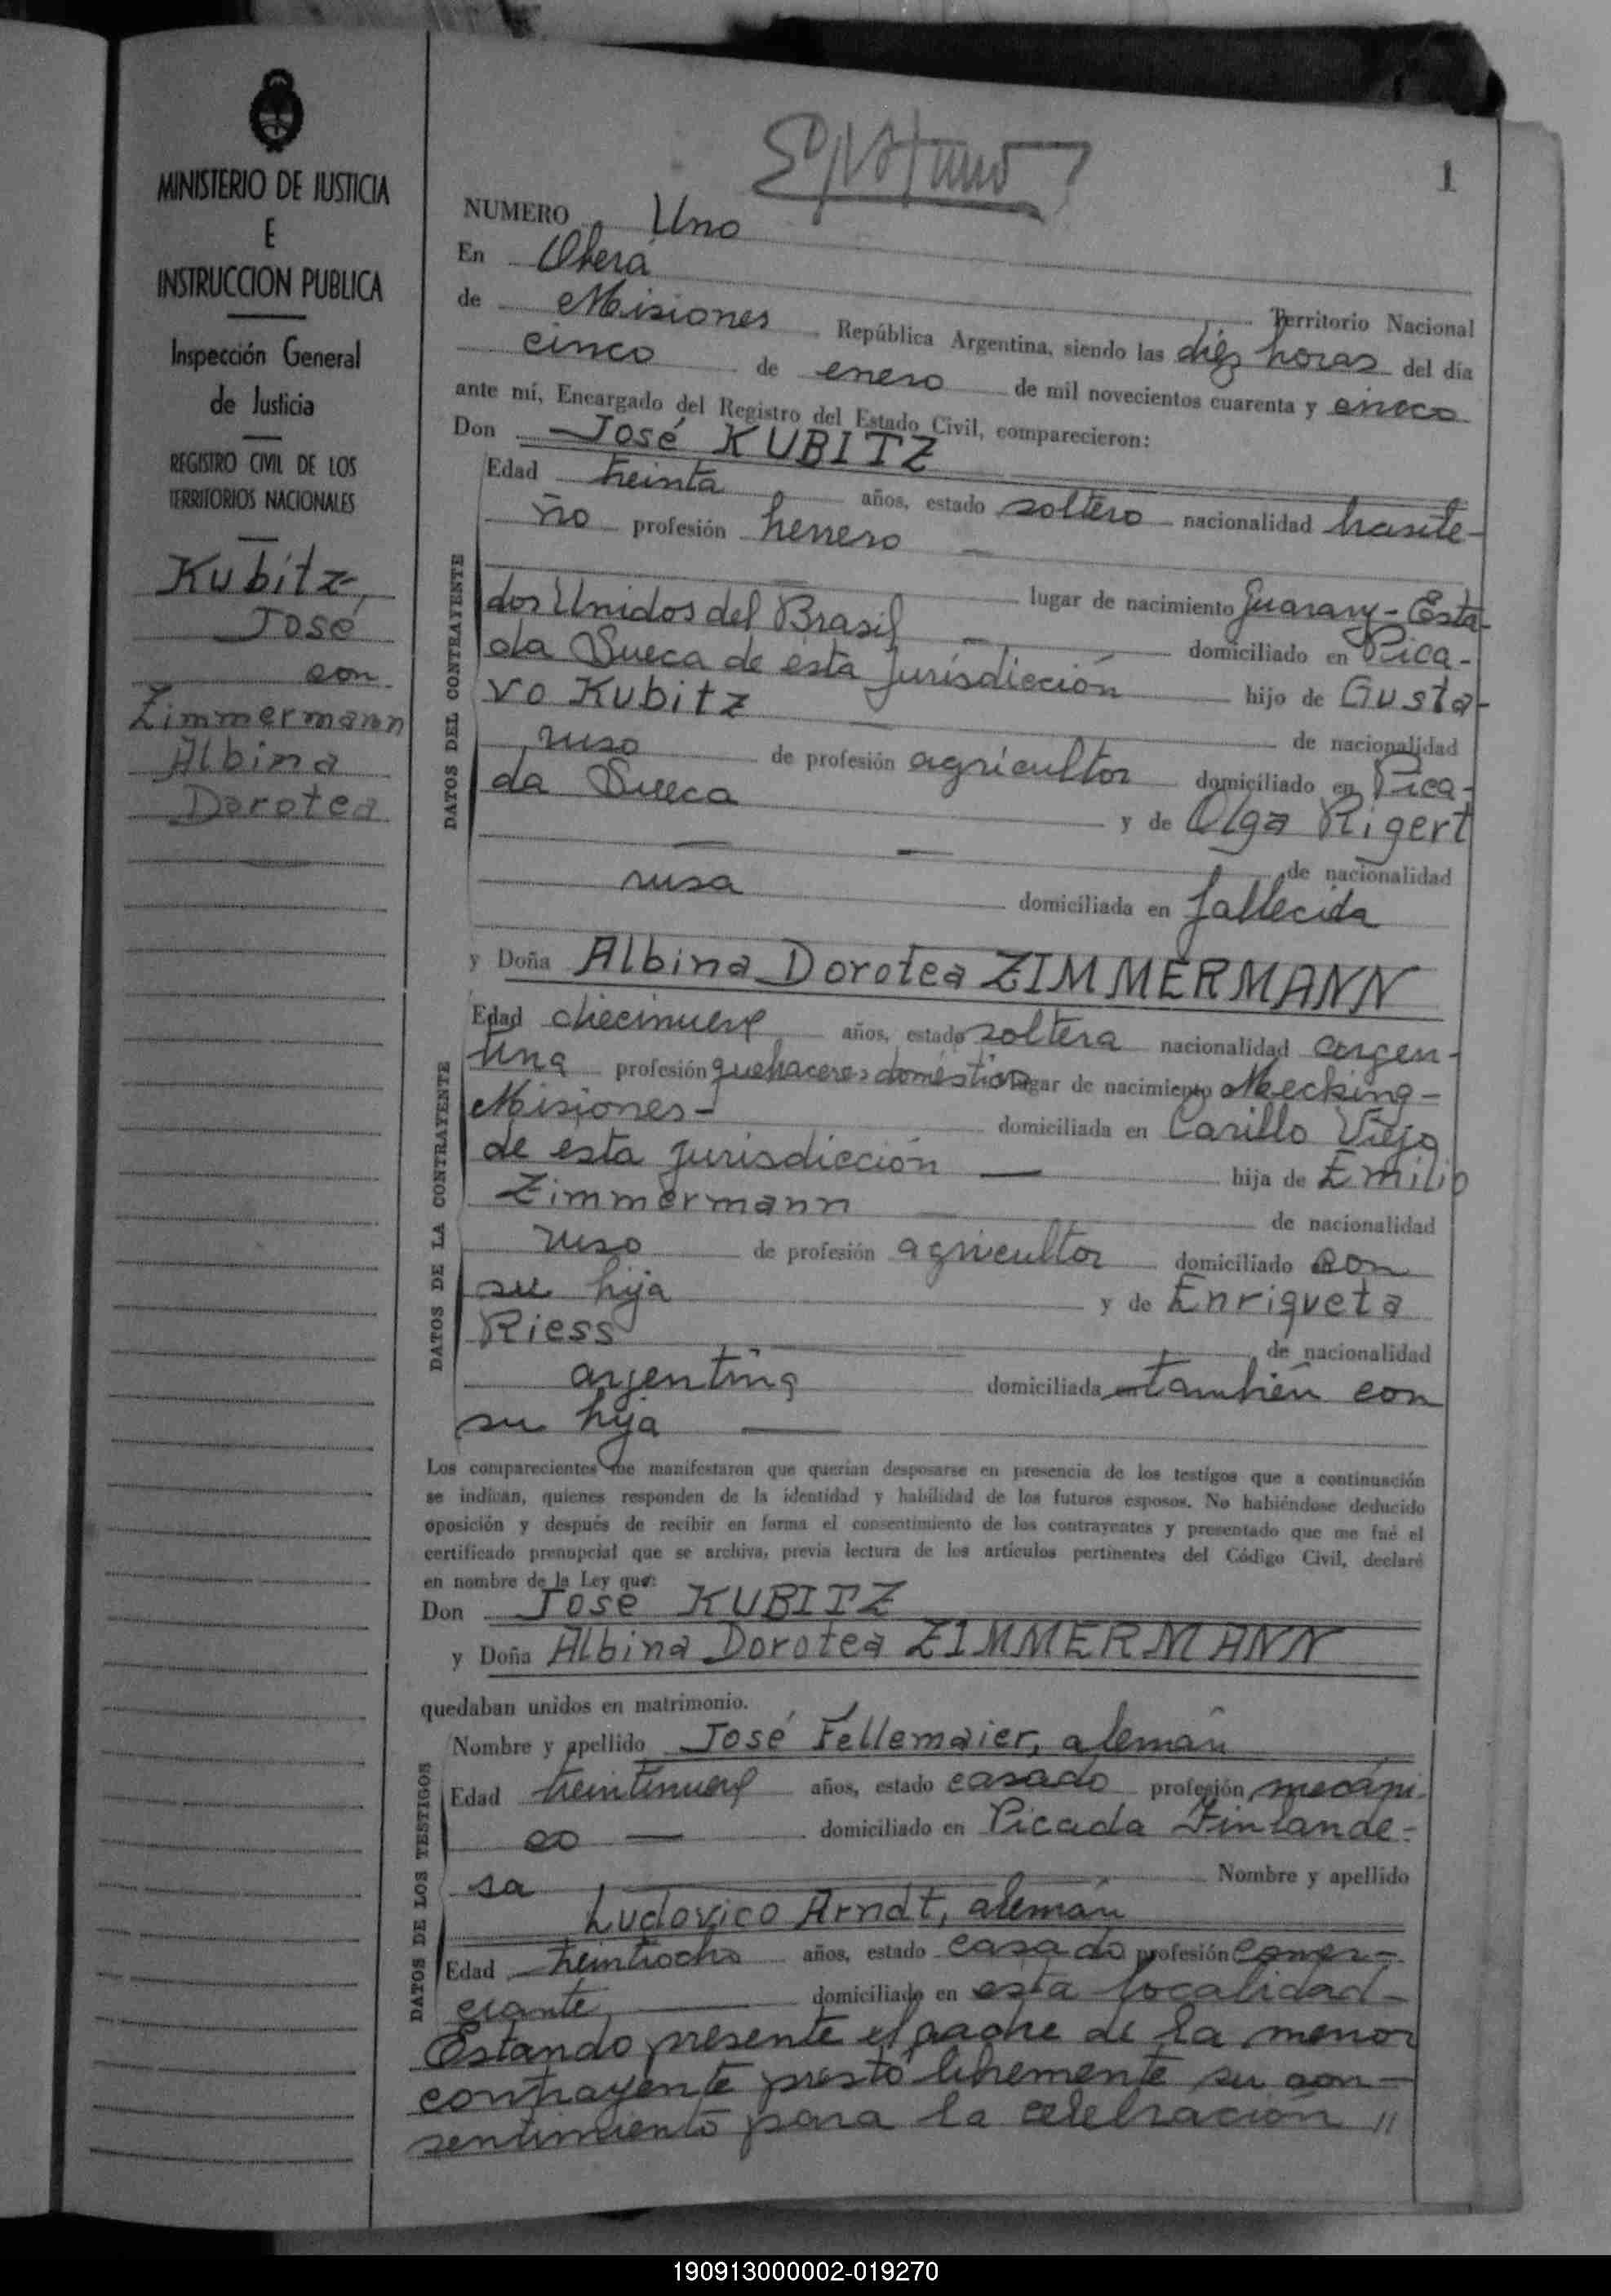 MINISTERIO DE JUSTICIA
E
INSTRUCCION PUBLICA
Inspección General
de Justicia
REGISTRO CIVIL DE LOS
TERRITORIOS NACIONALES
Kubitz,
José
con
Zimmermann
Albina
Dorotea
1
NUMERO Uno
En Oberá
Territorio Nacional
de Misiones República Argentina, siendo las diez horas del día
cinco de enero de mil novecientos cuarenta y cinco
ante mí, Encargado del Registro del Estado Civil, comparecieron:
Don José KUBITZ
DATOS DEL CONTRAYENTE
Edad treinta años, estado soltero nacionalidad brasile-
ño profesión herrero
lugar de nacimiento Guarany - Esta-
dos Unidos del Brasil domiciliado en Pica-
da Sueca de esta jurisdicción hijo de Gusta-
vo Kubitz de nacionalidad
ruso de profesión agricultor domiciliado en Pica-
da Sueca y de Olga Rigert
de nacionalidad
rusa domiciliada en fallecida
y Doña Albina Dorotea ZIMMERMANN
DATOS DE LA CONTRAYENTE
Edad diecinueve años, estado soltera nacionalidad argen-
tina profesión quehaceres domésticos lugar de nacimiento Mecking-
Misiones- domiciliada en Carillo Viejo
de esta jurisdicción hija de Emilio
Zimmermann de nacionalidad
ruso de profesión agricultor domiciliado con
su hija y de Enriqueta
Riess de nacionalidad
argentina domiciliada en también con
su hija
Los comparecientes me manifestaron que querían desposarse en presencia de los testigos que a continuación
se indican, quienes responden de la identidad y habilidad de los futuros esposos. No habiéndose deducido
oposición y después de recibir en forma el consentimiento de los contrayentes y presentado que me fué el
certificado prenupcial que se archiva, previa lectura de los artículos pertinentes del Código Civil, declaré
en nombre de la Ley que:
Don José KUBITZ
y Doña Albina Dorotea ZIMMERMANN
quedaban unidos en matrimonio.
DATOS DE LOS TESTIGOS
Nombre y apellido José Fellemaier, alemán
Edad treintinueve años, estado casado profesión mecáni-
co domiciliado en Picada Finlande-
sa Nombre y apellido
Ludovico Arndt, alemán
Edad treintiocho años, estado casado profesión comer-
ciante domiciliado en esta localidad-
Estando presente el padre de la menor
contrayente prestó libremente su con-
sentimiento para la celebración //
190913000002-019270